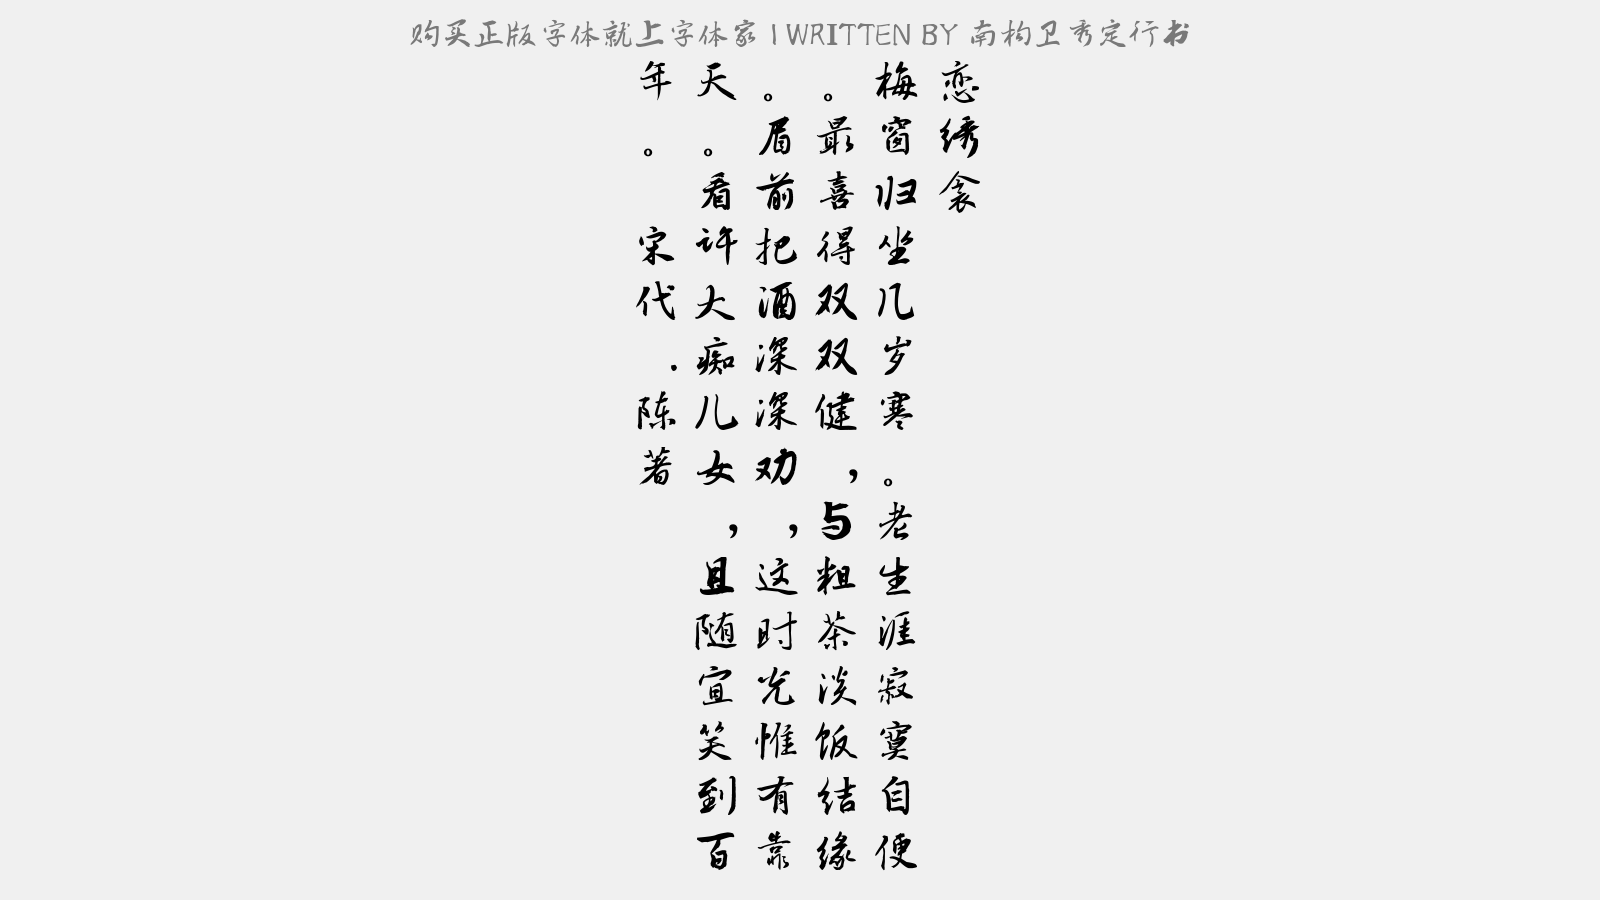 购买正版字体就上字体家 | WRITTEN BY 南构卫秀定行书
恋绣衾
梅窗归坐几岁寒。老生涯寂寞自便
。最喜得双双健，与粗茶淡饭结缘
。眉前把酒深深劝，这时光惟有靠
天。看许大痴儿女，且随宜笑到百
年。宋代.陈著